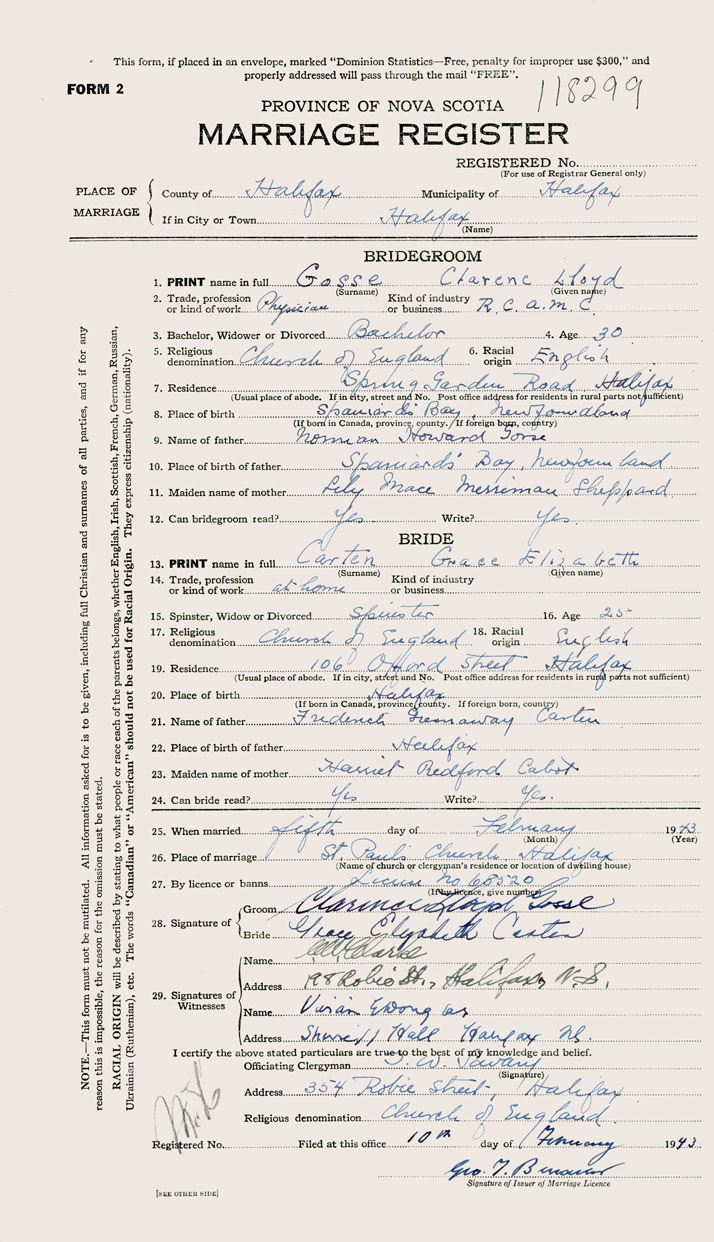 This form, if placed in an envelope, marked "Dominion Statistics—Free, penalty for improper use $300," and
properly addressed will pass through the mail "FREE".
FORM 2
118299
PROVINCE OF NOVA SCOTIA
MARRIAGE REGISTER
REGISTERED No.
(For use of Registrar General only)
PLACE OF MARRIAGE
County of Halifax Municipality of Halifax
If in City or Town Halifax
(Name)
BRIDEGROOM
1. PRINT name in full Gosse Clarenc Lloyd
(Surname) (Given name)
2. Trade, profession or kind of work Physician Kind of industry or business R.C.A.M.C.
3. Bachelor, Widower or Divorced Bachelor 4. Age 30
5. Religious denomination Church of England 6. Racial origin English
7. Residence Spring Garden Road Halifax
(Usual place of abode. If in city, street and No. Post office address for residents in rural parts not sufficient)
8. Place of birth Spaniard's Bay, Newfoundland
(If born in Canada, province, county. If foreign born, country)
9. Name of father Norman Howard Gosse
10. Place of birth of father Spaniards' Bay, Newfoundland
11. Maiden name of mother Lily Mace Merriman Sheppard
12. Can bridegroom read? Yes Write? Yes.
BRIDE
13. PRINT name in full Carten Grace Elizabeth
(Surname) (Given name)
14. Trade, profession or kind of work at home Kind of industry or business
15. Spinster, Widow or Divorced Spinster 16. Age 25
17. Religious denomination Church of England 18. Racial origin English
19. Residence 106 Oxford Street Halifax
(Usual place of abode. If in city, street and No. Post office address for residents in rural parts not sufficient)
20. Place of birth Halifax
(If born in Canada, province, county. If foreign born, country)
21. Name of father Frederick Greenaway Carten
22. Place of birth of father Halifax
23. Maiden name of mother Harriet Redford Cabot
24. Can bride read? Yes Write? Yes.
25. When married fifth day of February 1943
(Month) (Year)
26. Place of marriage St. Paul's Church Halifax
(Name of church or clergyman's residence or location of dwelling house)
27. By licence or banns License No 68520
(If by licence, give number)
28. Signature of
Groom Clarence Lloyd Gosse
Bride Grace Elizabeth Carten
29. Signatures of Witnesses
Name Clarke
Address 198 Robie St., Halifax, N.S.
Name Vivian E Douglas
Address Shirreff Hall Halifax N.S.
I certify the above stated particulars are true to the best of my knowledge and belief.
Officiating Clergyman
(Signature)
Address 354 Robie Street, Halifax
Religious denomination Church of England.
Registered No. Filed at this office 10th day of February 1943
Signature of Issuer of Marriage Licence
[SEE OTHER SIDE]
NOTE.—This form must not be mutilated. All information asked for is to be given, including full Christian and surnames of all parties, and if for any
reason this is impossible, the reason for the omission must be stated.
RACIAL ORIGIN will be described by stating to what people or race each of the parents belongs, whether English, Irish, Scottish, French, German, Russian,
Ukrainian (Ruthenian), etc. The words "Canadian" or "American" should not be used for Racial Origin. They express citizenship (nationality).